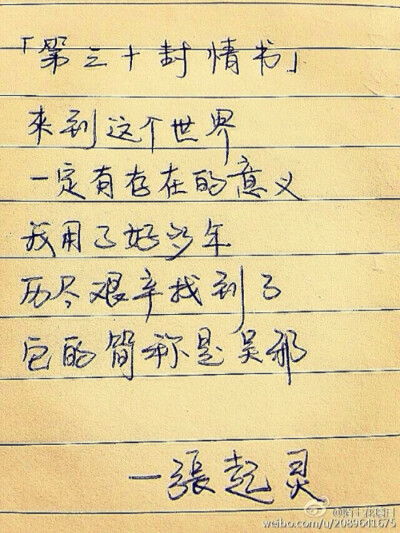 「第三十封情书」
來到这个世界
一定有存在的意义
我用了好多年
历尽艰辛找到了
它的简称是吴邪
—張起灵
weibo.com/u/2089641675